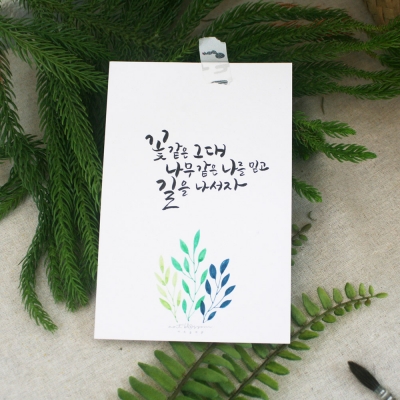 꽃 같은 그대
나무 같은 나를 믿고
길을 나서자